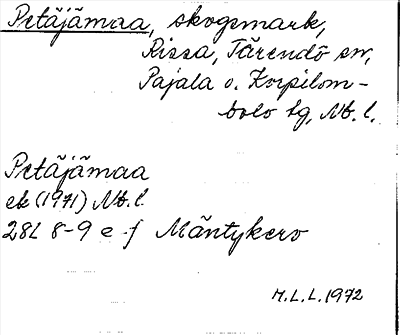 Petäjämaa, skogsmark,
Rissa, Tärendö sn,
Pajala o. Korpilom-
bolo tg, Nb. l.
Petäjämaa
ek (1971) Nb. l.
28L 8-9 e f Mäntykero
M.L.L. 1972